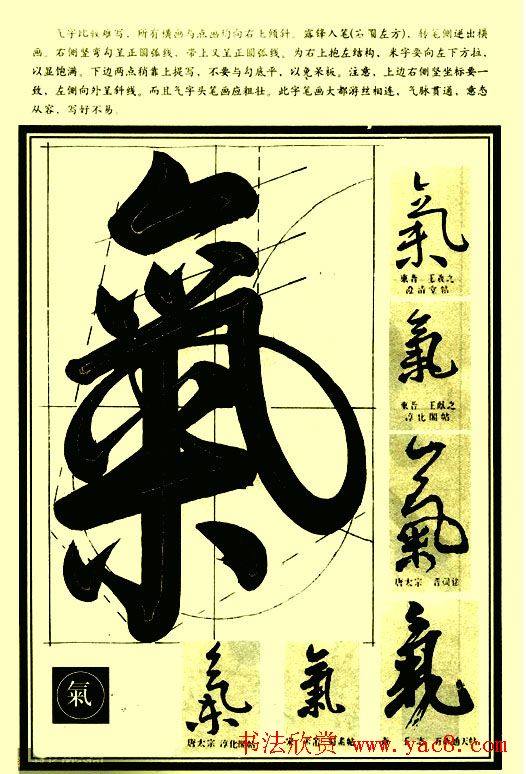 气字比较难写，所有横画与点画均向右上倾斜。露锋入笔(忌圆左方)，转笔侧逆出横
画。右侧竖弯勾呈正圆弧线，带上又呈正圆弧线。为右上抱左结构，米字要向左下方拉，
以显饱满。下边两点稍靠上提写，不要与勾底平，以免呆板。注意，上边右侧竖坐标要一
致，左侧向外呈斜线。而且气字头笔画应粗壮。此字笔画大都游丝相连，气脉贯通，意态
从容，写好不易。
氣
氣
東晋 王羲之
澄清堂帖
氣
東晋 王献之
淳化閣帖
氣
唐太宗 晋祠铭
氣
氣
唐太宗 淳化閣帖
氣
氣
书法欣赏 www.yac8.com